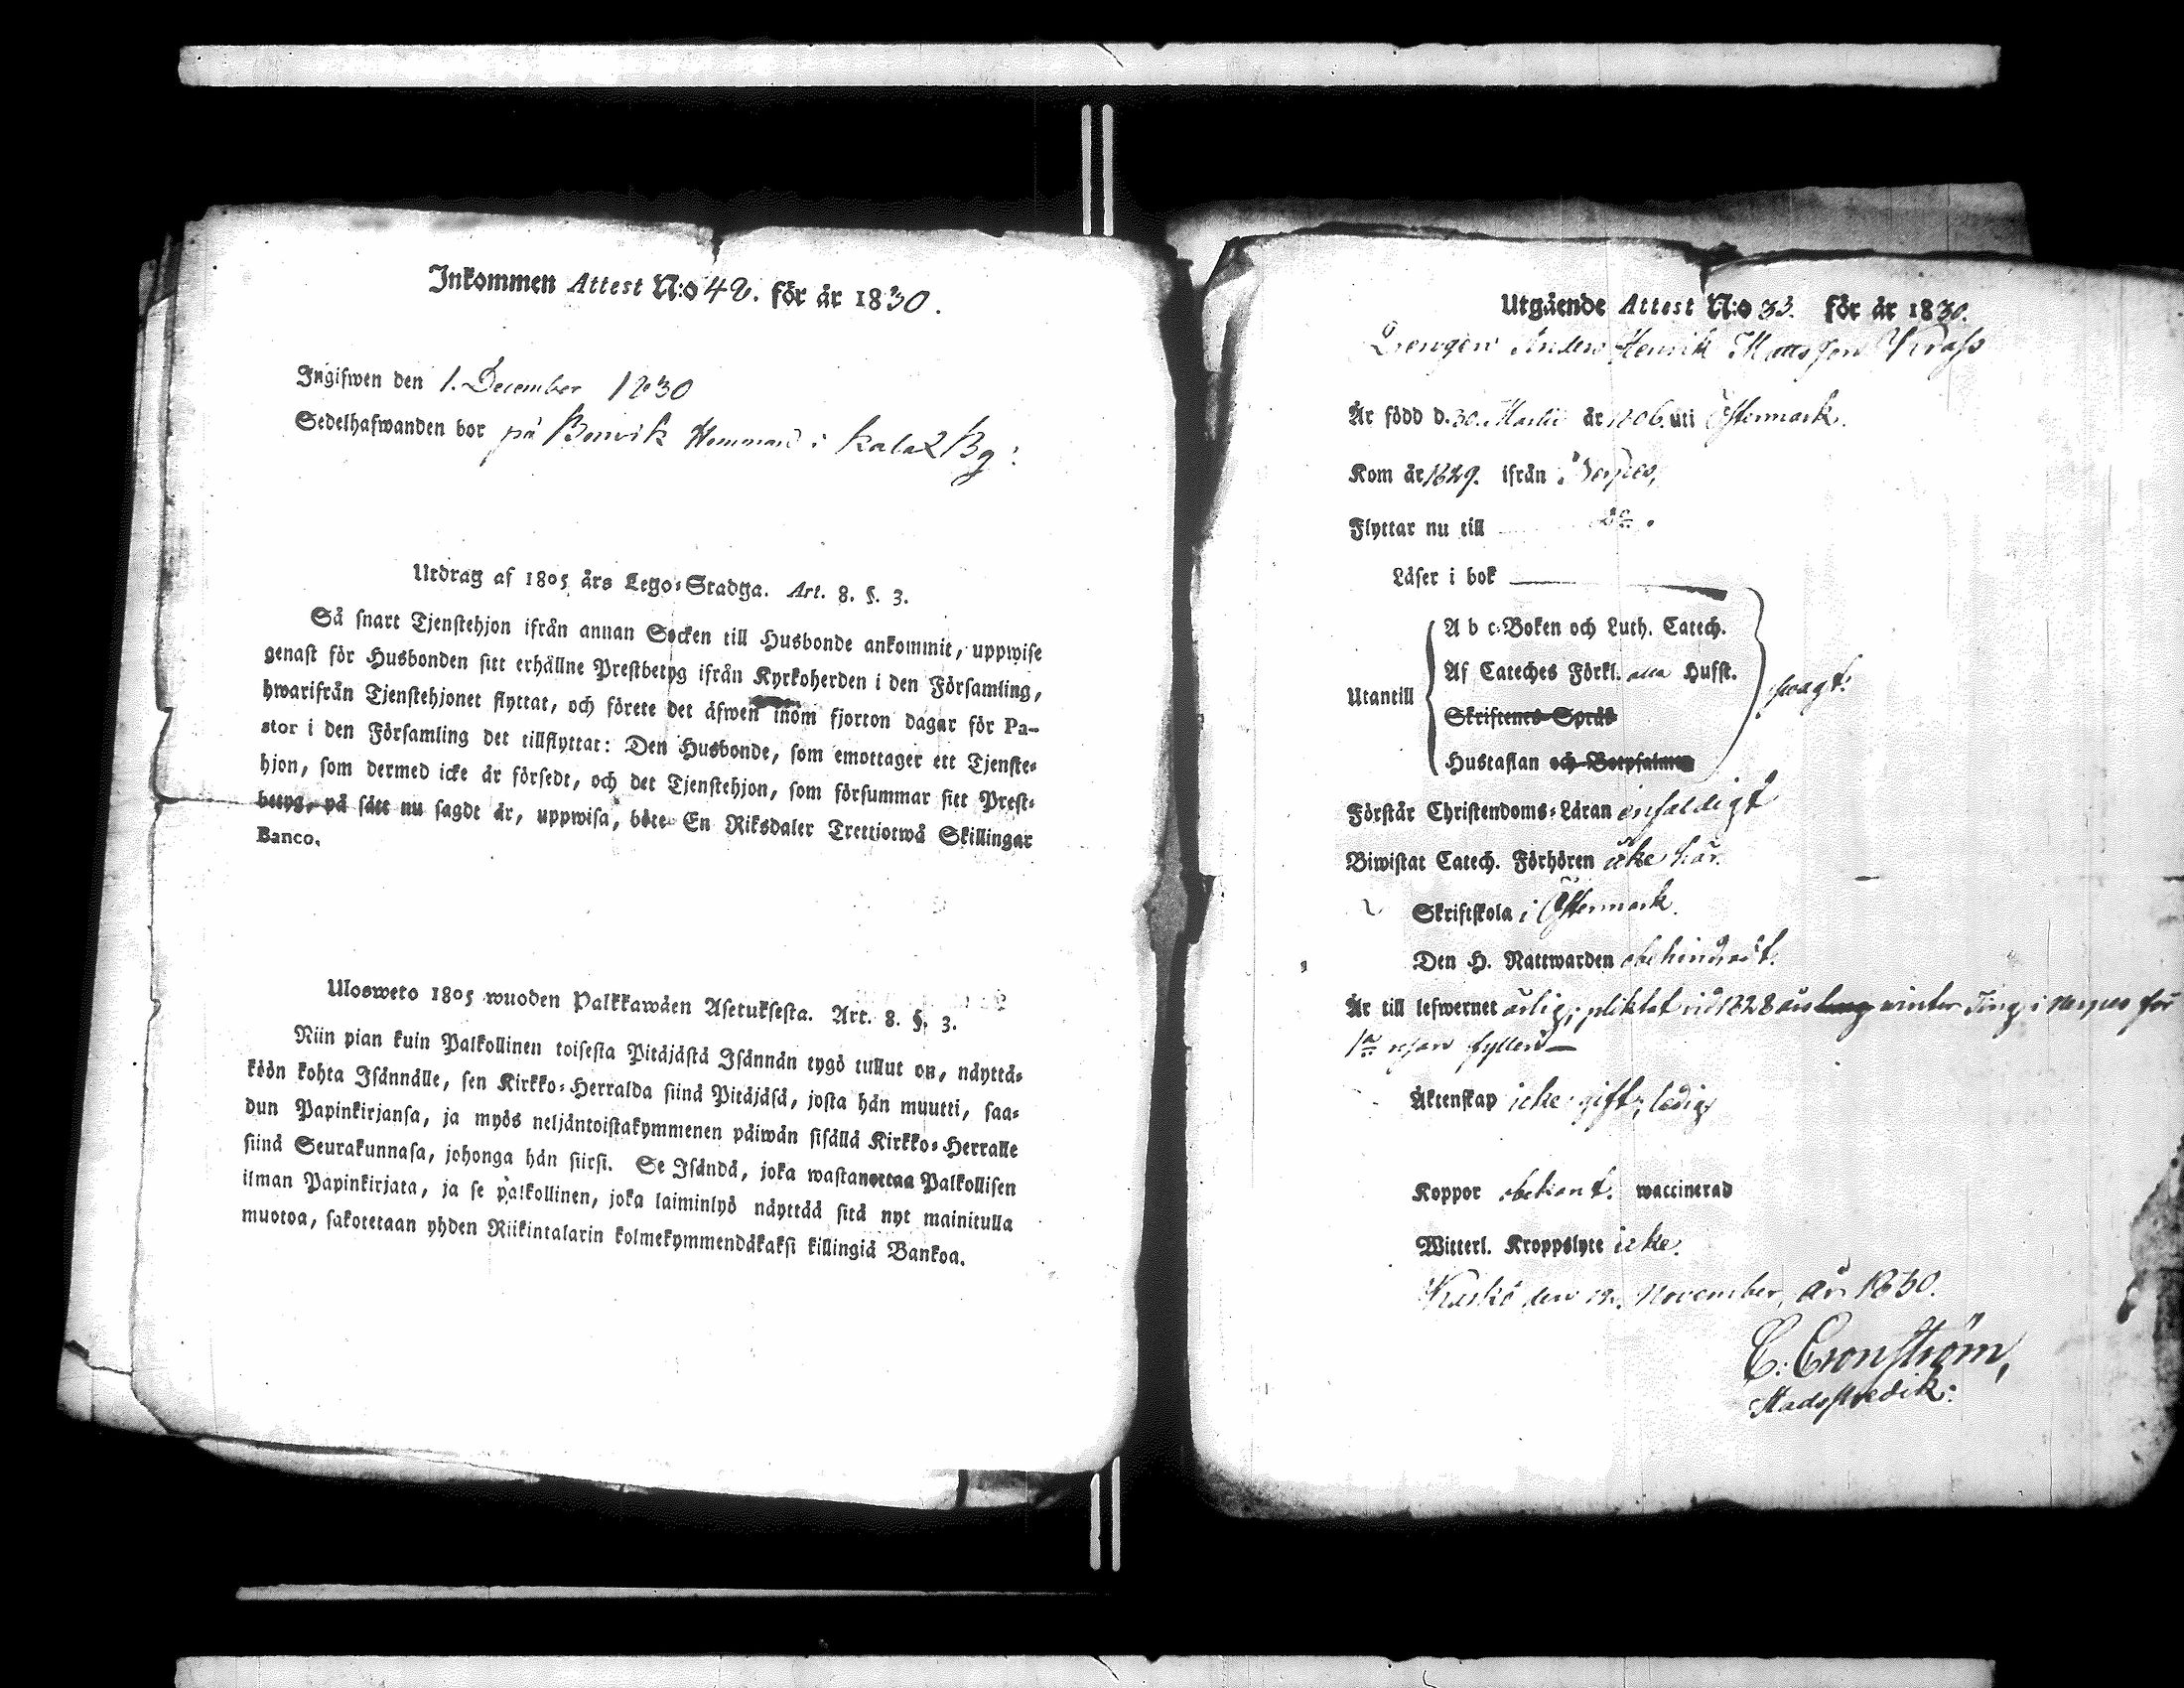 Inkommen Attest N:o 42. för år 1830.
Ingifwen den 1. December 1830
Sedelhafwanden bor på Benvik Hemman i Kalax By:
Utdrag af 1805 års Lego-Stadga. Art. 8. §. 3.
Så snart Tjenstehjon ifrån annan Socken till Husbonde ankommit, uppwise
genast för Husbonden sitt erhållne Prestbetyg ifrån Kyrkoherden i den Församling,
hwarifrån Tjenstehjonet flyttat, och förete det äfwen inom fjorton dagar för Pa-
stor i den Församling det tillflyttat: Den Husbonde, som emottager ett Tjenste-
hjon, som dermed icke är försedt, och det Tjenstehjon, som försummar sitt Prest-
betyg, på sätt nu sagdt är, uppwisa, böte En Riksdaler Trettiotwå Skillingar
Banco.
Ulosweto 1805 wuoden Palkkawäen Asetuksesta. Art. 8. §. 3.
Niin pian kuin Palkollinen toisesta Pitäjästä Isännän tygö tullut on, näyttä-
köön kohta Isännälle, sen Kirkko-Herralda siinä Pitäjäsä, josta hän muutti, saa-
dun Papinkirjansa, ja myös neljäntoistakymmenen päiwän sisällä Kirkko-Herralle
siinä Seurakunnasa, johonga hän siirsi. Se Isändä, joka wastanottaa Palkollisen
ilman Papinkirjata, ja se palkollinen, joka laiminlyö näyttää sitä nyt mainitulla
muotoa, sakotetaan yhden Riikintalarin kolmekymmendäkaksi killingiä Bankoa.
Utgående Attest N:o 33. för år 1830.
Drengen Anders Henrik Mattsson
Är född d. 30. Martii år 1806. uti Östermark.
Kom år 1829. ifrån Nerpes,
Flyttar nu till D:o.
Läser i bok
A b c-Boken och Luth. Catech.
Af Cateches Förkl. alla Husst.
Utantill
Skriftenes Språk
Hustaflan och Botpsalmen
swagt.
Förstår Christendoms-Läran enfaldigt
Biwistat Catech. Förhören icke här.
Skriftskola i Östermark.
Den H. Nattwarden obehindradt.
Är till lefwernet ärlig; pliktat vid 1828 års winter Ting i Nerpes för
1:a resan fylleri
Äktenskap icke gift; ledig
Koppor obekant. waccinerad
Witterl. Kroppslyte icke.
Kaskö den November, år 1830.
C. Cronström,